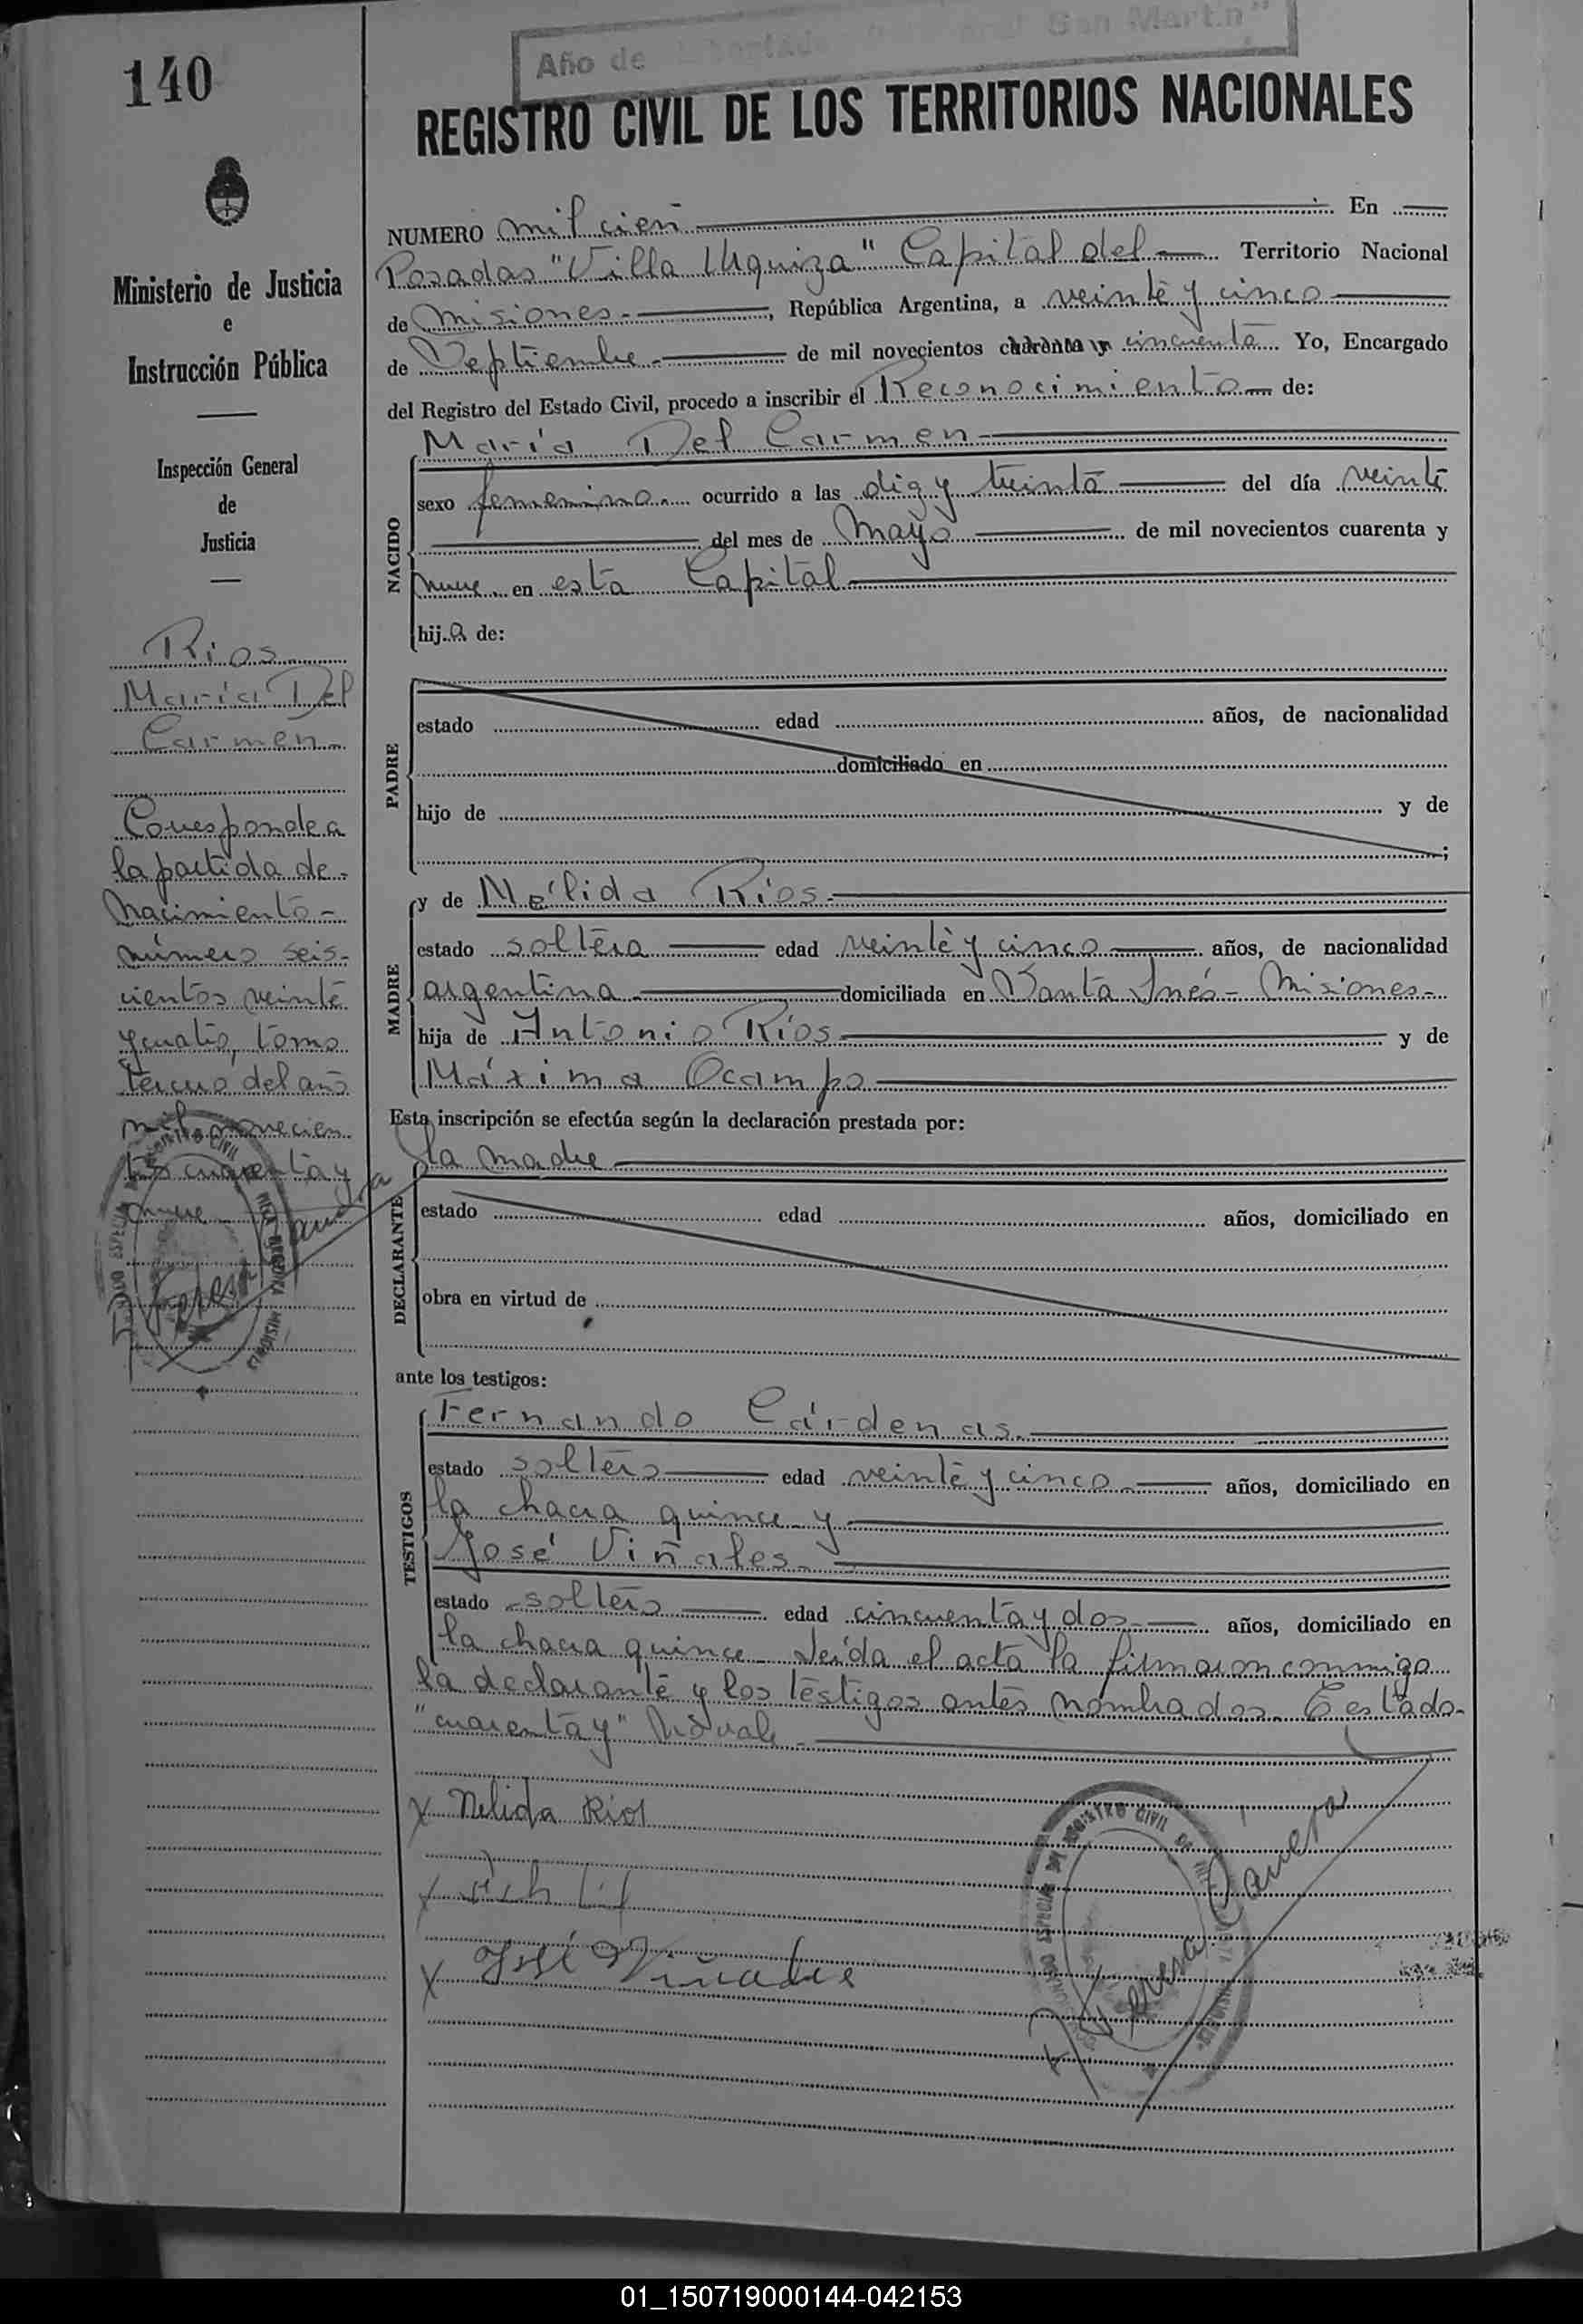 Año de San Martín"
140
REGISTRO CIVIL DE LOS TERRITORIOS NACIONALES
Ministerio de Justicia
e
Instrucción Pública
Inspección General
de
Justicia
Rios
María Del
Carmen
Corresponde a
la partida de
Nacimiento
número seis-
cientos veinte
y cuatro, tomo
tercero del año
mil novecien
tos cuarenta y
nueve
NUMERO mil cien En
Posadas "Villa Urquiza" Capital del Territorio Nacional
de Misiones, República Argentina, a veinte y cinco
de Septiembre de mil novecientos cuarenta y cincuenta Yo, Encargado
del Registro del Estado Civil, procedo a inscribir el Reconocimiento de:
María Del Carmen
NACIDO
sexo femenino ocurrido a las diez y treinta del día veinte
del mes de Mayo de mil novecientos cuarenta y
nueve en esta Capital
hija de:
PADRE
estado edad años, de nacionalidad
domiciliado en
hijo de y de
;
MADRE
y de Nélida Ríos
estado soltera edad veinte y cinco años, de nacionalidad
argentina domiciliada en Santa Inés - Misiones-
hija de Antonio Ríos y de
Máxima Ocampo
Esta inscripción se efectúa según la declaración prestada por:
la madre
DECLARANTE
estado edad años, domiciliado en
obra en virtud de
ante los testigos:
TESTIGOS
Fernando Cárdenas
estado soltero edad veinte y cinco años, domiciliado en
la chacra quince y
José Viñales
estado soltero edad cincuenta y dos años, domiciliado en
la chacra quince. Leída el acta la firmaron conmigo
la declarante y los testigos antes nombrados. Testado-
"cuarenta y" No vale
x Nelida Rios
x
x José Viñales
REGISTRO CIVIL
Teresa
01_150719000144-042153